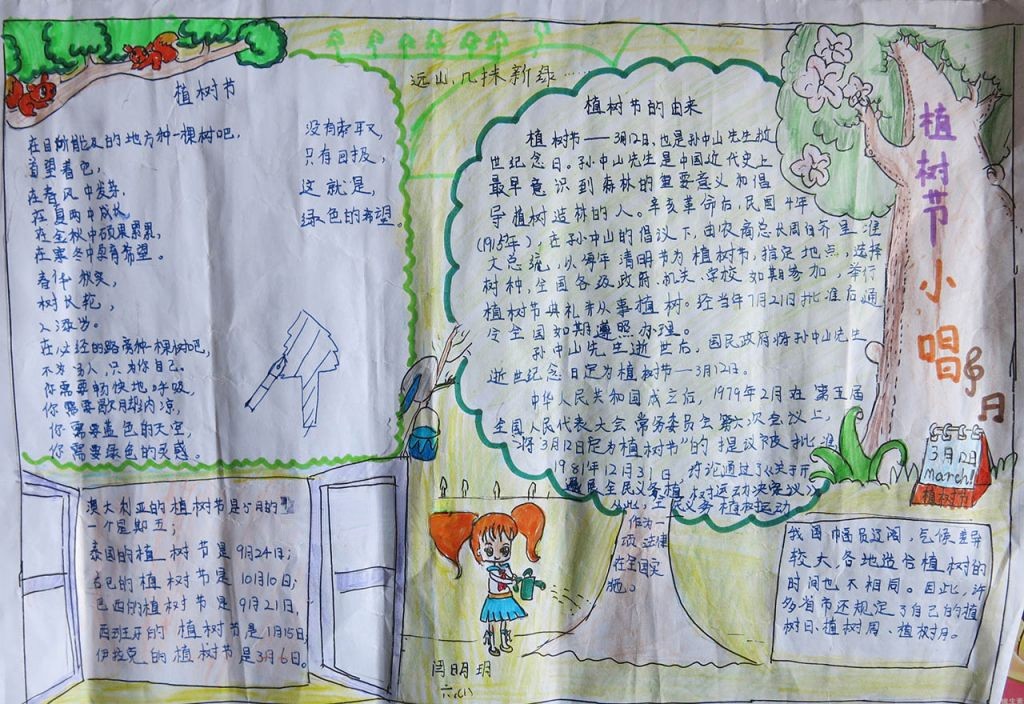 远山,几抹新绿……
植树节
在目所能及的地方种一棵树吧,
看望着它,
在春风中发芽,
在夏雨中成长,
在金秋中硕果累累,
在寒冬中孕育希望。
春华秋实,
树长轮,
人添岁。
在必经的路旁种一棵树吧,
不为旁人,只为你自己。
你需要畅快地呼吸,
你需要歇脚的凉,
你需要蓝色的天空,
你需要绿色的灵感。
没有索取,
只有回报,
这就是,
绿色的希望。
植树节的由来
植树节——3月12日,也是孙中山先生逝
世纪念日。孙中山先生是中国近代史上
最早意识到森林的重要意义和倡
导植树造林的人。辛亥革命后,民国4年
(1915年),在孙中山的倡议下,由农商总长周自齐呈准
大总统,以每年清明节为植树节,指定地点,选择
树种,全国各级政府、机关、学校如期参加,举行
植树节典礼并从事植树。经当年7月21日批准后通
令全国如期遵照办理。
孙中山先生逝世后,国民政府将孙中山先生
逝世纪念日定为植树节——3月12日。
中华人民共和国成立后,1979年2月在第五届
全国人民代表大会常务委员会第六次会议上,
“将3月12日定为植树节”的提议被批准
1981年12月31日讨论通过了《关于开
展全民义务植树运动决议》
从此,全民义务植树运动
作为一
项法律
在全国实
施。
植树节小唱
3月12日
march!
植树节
澳大利亚的植树节是5月的
一个星期五;
泰国的植树节是9月24日;
古巴的植树节是10月10日;
巴西的植树节是9月21日,
西班牙的植树节是1月15日,
伊拉克的植树节是3月6日。
闫明玥
六.(1)
我国幅员辽阔,气候差异
较大,各地适合植树的
时间也不相同。因此,许
多省市还规定了自己的植
树日、植树周、植树月。